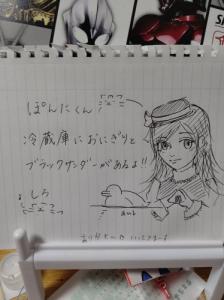 ぽんにくん!
冷蔵庫におにぎりと
ブラックサンダーがあるよ!!
しろ